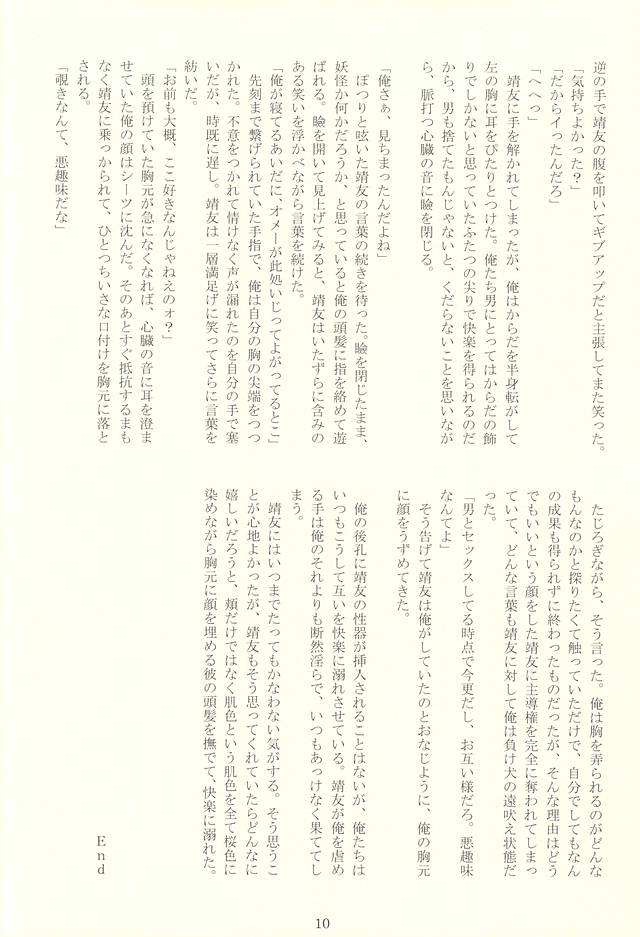 逆の手で靖友の腹を叩いてギブアップだと主張してまた笑った。
「気持ちよかった？」
「だからイったんだろ」
「へへっ」
靖友に手を解かれてしまったが、俺はからだを半身転がして
左の胸に耳をぴたりとつけた。俺たち男にとってはからだの飾
りでしかないと思っていたふたつの尖りで快楽を得られるのだ
から、男も捨てたもんじゃないと、くだらないことを思いなが
ら、脈打つ心臓の音に瞼を閉じる。
「俺さぁ、見ちまったんだよね」
ぽつりと呟いた靖友の言葉の続きを待った。瞼を閉じたまま、
妖怪か何かだろうか、と思っていると俺の頭髪に指を絡めて遊
ばれる。瞼を開いて見上げてみると、靖友はいたずらに含みの
ある笑いを浮かべながら言葉を続けた。
「俺が寝てるあいだに、オメーが此処いじってよがってるとこ」
先刻まで繋げられていた手指で、俺は自分の胸の尖端をつつ
かれた。不意をつかれて情けなく声が漏れたのを自分の手で塞
いだが、時既に遅し。靖友は一層満足げに笑ってさらに言葉を
紡いだ。
「お前も大概、ここ好きなんじゃねえのォ？」
頭を預けていた胸元が急になくなれば、心臓の音に耳を澄ま
せていた俺の顔はシーツに沈んだ。そのあとすぐ抵抗するまも
なく靖友に乗っかられて、ひとつちいさな口付けを胸元に落と
される。
「覗きなんて、悪趣味だな」
たじろぎながら、そう言った。俺は胸を弄られるのがどんな
もんなのかと探りたくて触っていただけで、自分でしてもなん
の成果も得られずに終わったものだったが、そんな理由はどう
でもいいという顔をした靖友に主導権を完全に奪われてしまっ
ていて、どんな言葉も靖友に対して俺は負け犬の遠吠え状態だ
った。
「男とセックスしてる時点で今更だし、お互い様だろ。悪趣味
なんてよ」
そう告げて靖友は俺がしていたのとおなじように、俺の胸元
に顔をうずめてきた。
俺の後孔に靖友の性器が挿入されることはないが、俺たちは
いつもこうして互いを快楽に溺れさせている。靖友が俺を虐め
る手は俺のそれよりも断然淫らで、いつもあっけなく果ててし
まう。
靖友にはいつまでたってもかなわない気がする。そう思うこ
とが心地よかったが、靖友もそう思ってくれていたらどんなに
嬉しいだろうと、頬だけではなく肌色という肌色を全て桜色に
染めながら胸元に顔を埋める彼の頭髪を撫でて、快楽に溺れた。
End
10